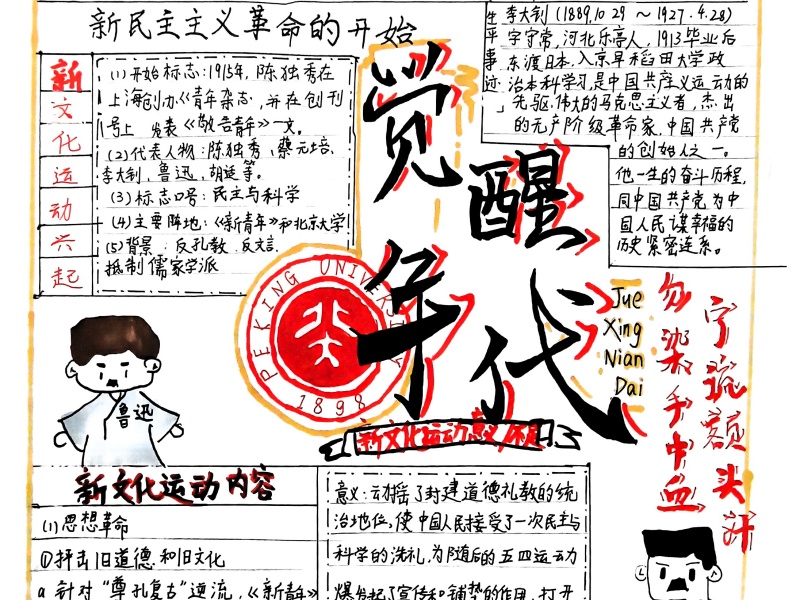 新民主主义革命的开始
新文化运动兴起
(1)开始标志:1915年,陈独秀在
上海创办《青年杂志,并在创刊
号上 发表《敬告青年》一文。
(2)代表人物:陈独秀,蔡元培、
李大钊,鲁迅,胡适等。
(3)标志口号:民主与科学
(4)主要阵地:《新青年》和北京大学
(5)背景:反孔教 反文言
抵制儒家学派
觉醒年代
Jue
Xing
Nian
Dai
生平事迹
李大钊(1889.10.29~1927.4.28)
字守常,河北乐亭人,1913毕业后
东渡日本,入京早稻田大学政
治本科学习,是中国共产主义运动的
先驱,伟大的马克思主义者,杰出
的无产阶级革命家,中国共产党
的创始人之一。
他一生的奋斗历程,
同中国共产党为中
国人民谋幸福的
历史紧密连系。
PEKING UNIVERSITY
1898
鲁迅
宁流额头汗
勿染手中血
新文化运动意义
新文化运动内容
(1)思想革命
①抨击旧道德和旧文化
a 针对“尊孔复古”逆流,《新青年》
意义:动摇了封建道德礼教的统
治地位,使中国人民接受了一次民主与
科学的洗礼,为随后的五四运动
爆发起了宣传和铺垫的作用,打开